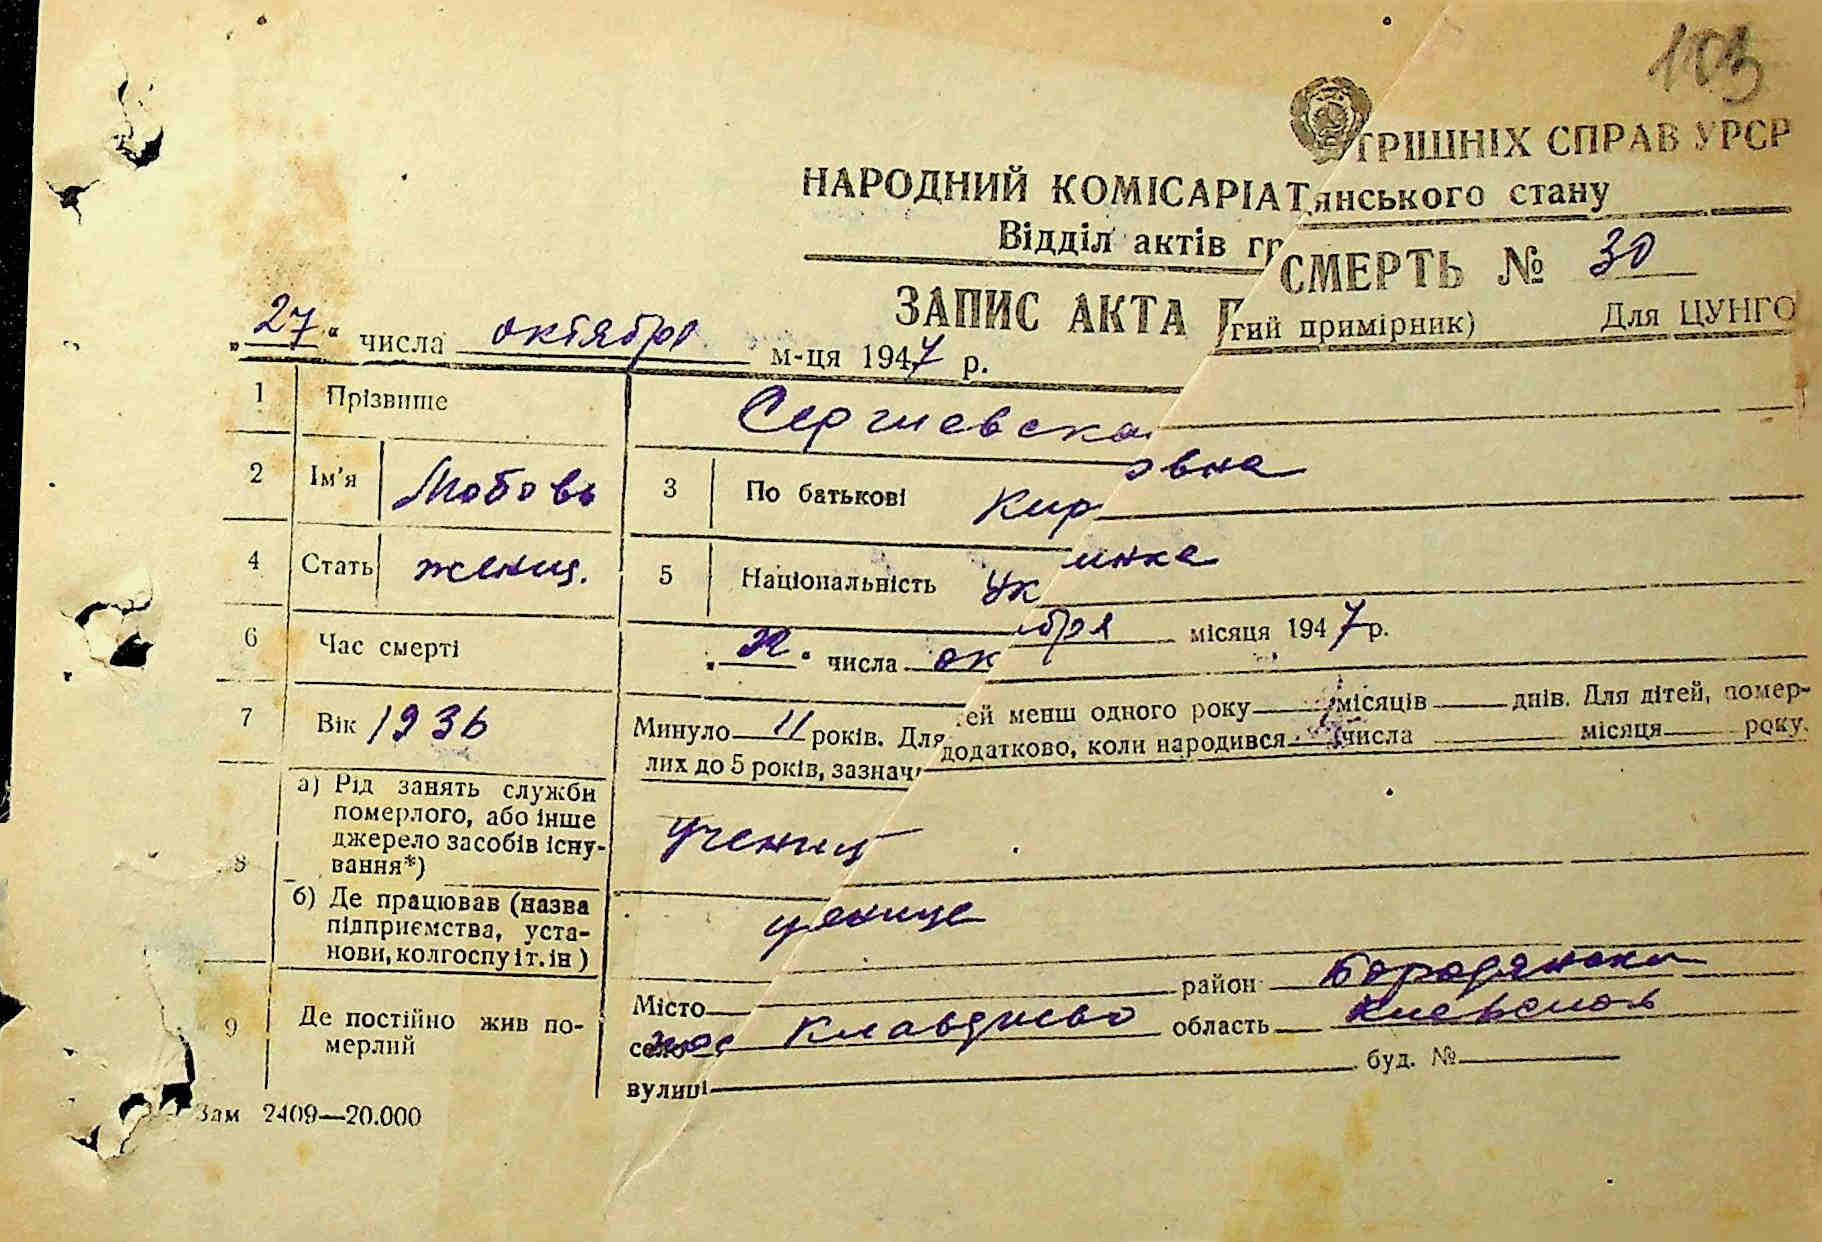 103
ТРІШНІХ СПРАВ УРСР
НАРОДНИЙ КОМІСАРІАТ
янського стану
Відділ актів гр
СМЕРТЬ № 30
ЗАПИС АКТА П
гий примірник) Для ЦУНГО
„27“ числа октября м-ця 1947 р.
1 Прізвище Сергиевская
2 Ім'я Любовь 3 По батькові Кир овна
4 Стать женщ. 5 Національність Ук инка
6 Час смерті „22“ числа ок ября місяця 1947 р.
7 Вік 1936 Минуло 11 років. Для тей менш одного року місяців днів. Для дітей, помер-
лих до 5 років, зазнач додатково, коли народився числа місяця року.
8 а) Рід занять служби
померлого, або інше
джерело засобів існу-
вання*) учениц
б) Де працював (назва
підприємства, уста-
нови, колгоспу і т. ін) ученица
9 Де постійно жив по-
мерлий
Місто район Бородянский
село пос Клавдиево область Киевской
вулиці буд. №
Зам 2409—20.000